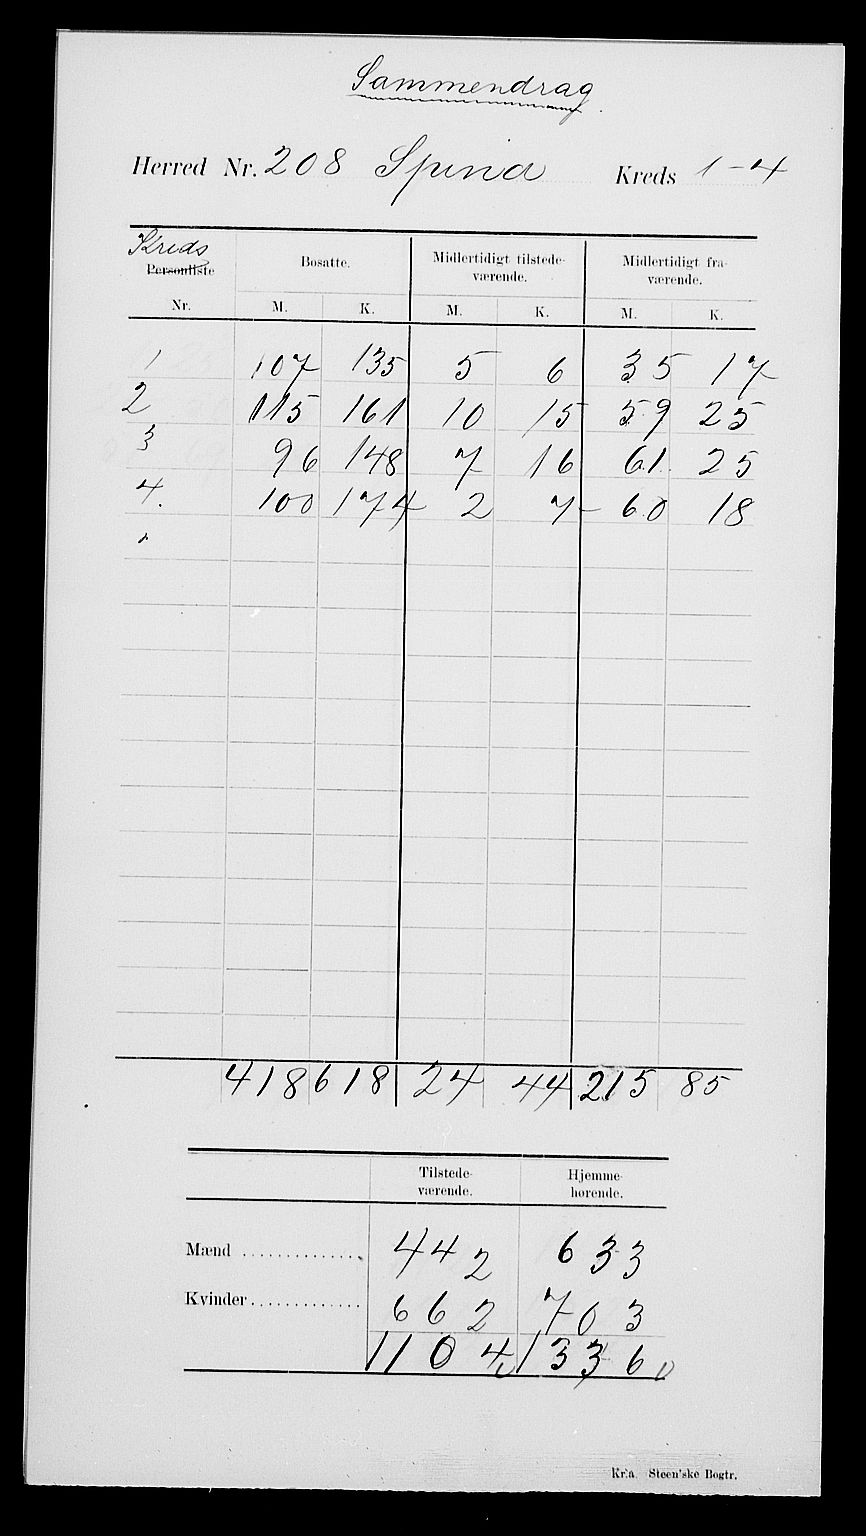 Sammendrag
Herred Nr. 208 Spind Kreds 1-4
Kreds
Personliste Bosatte. Midlertidigt tilstede- Midlertidigt fra-
værende. værende.
Nr. M. K. M. K. M. K.
1 107 135 5 6 35 17
2 115 161 10 15 59 25
3 96 148 7 16 61 25
4. 100 174 2 7 60 18
418 618 24 44 215 85
Tilstede- Hjemme-
værende. hørende.
Mænd .............. 442 633
Kvinder ............. 662 703
1104 1336
Kr.a. Steen'ske Bogtr.